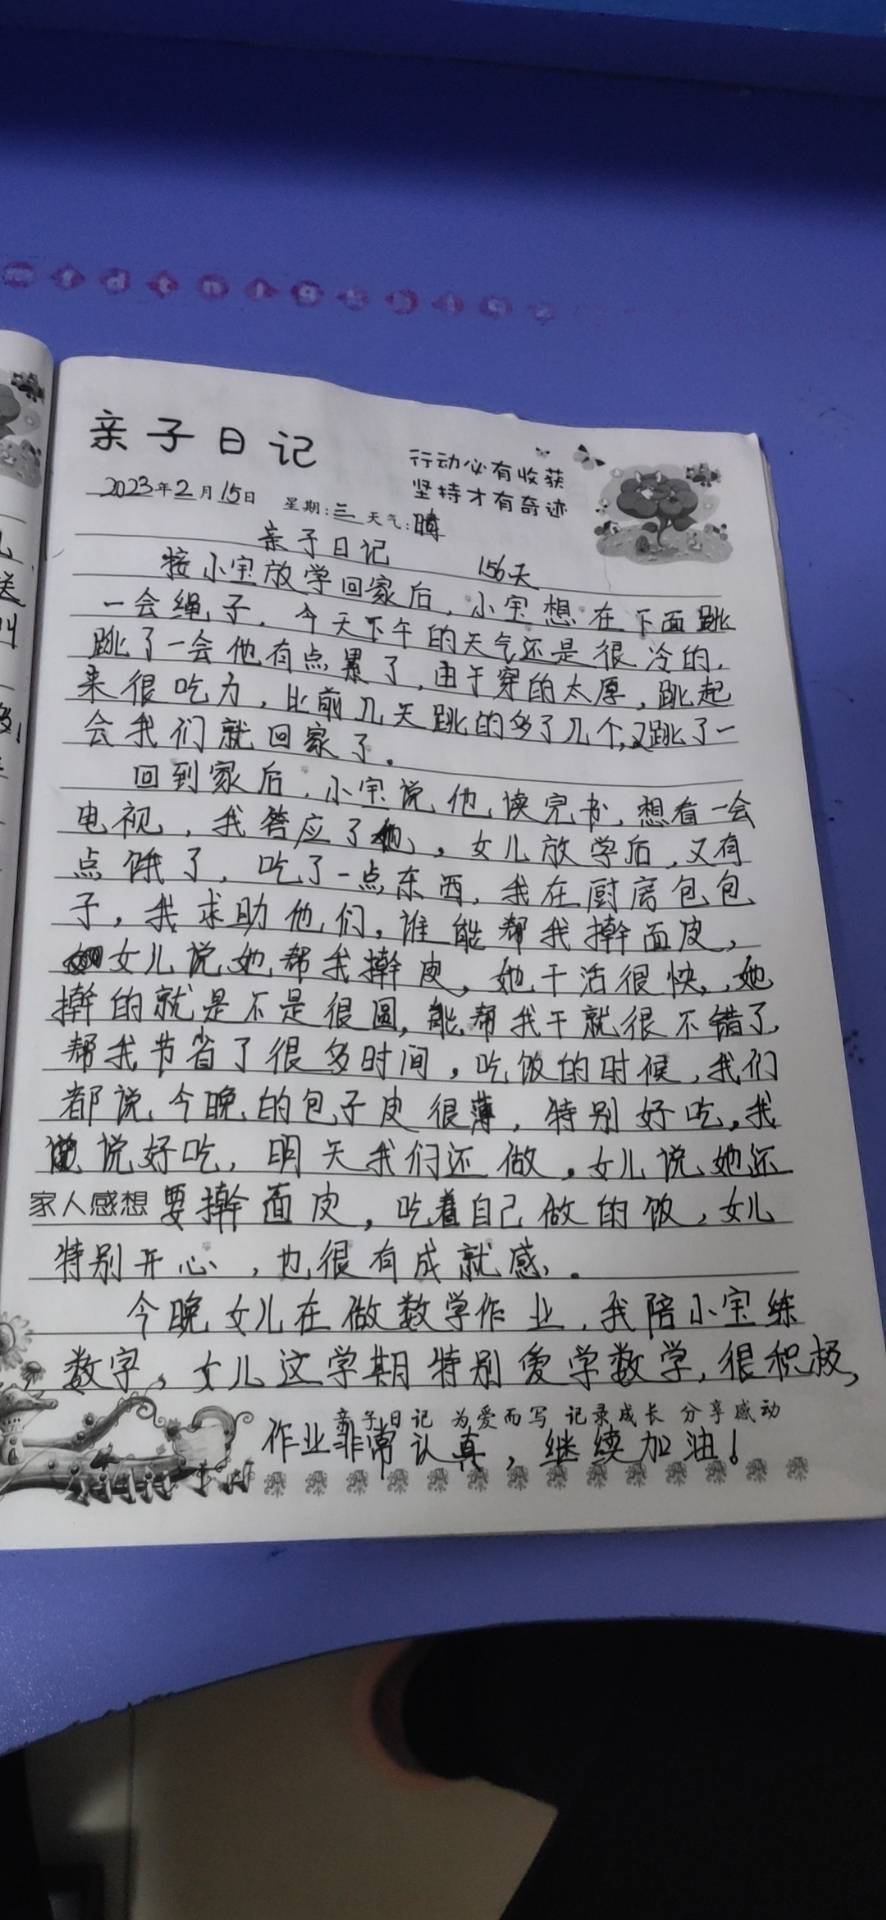 亲子日记
行动必有收获
坚持才有奇迹
2023年2月15日 星期:三 天气:晴
亲子日记 156天
接小宝放学回家后,小宝想在下面跳
一会绳子,今天下午的天气还是很冷的,
跳了一会他有点累了,由于穿的太厚,跳起
来很吃力,比前几天跳的多了几个,又跳了一
会我们就回家了。
回到家后,小宝说他读完书,想看一会
电视,我答应了他,女儿放学后,又有
点饿了,吃了一点东西,我在厨房包包
子,我求助他们,谁能帮我擀面皮,
女儿说她帮我擀皮,她干活很快,她
擀的就是不是很圆,能帮我干就很不错了,
帮我节省了很多时间,吃饭的时候,我们
都说今晚的包子皮很薄,特别好吃,我
说好吃,明天我们还做,女儿说她还
家人感想 要擀面皮,吃着自己做的饭,女儿
特别开心,也很有成就感。
今晚女儿在做数学作业,我陪小宝练
数字,女儿这学期特别爱学数学,很积极,
亲子日记 为爱而写 记录成长 分享感动
作业非常认真,继续加油!